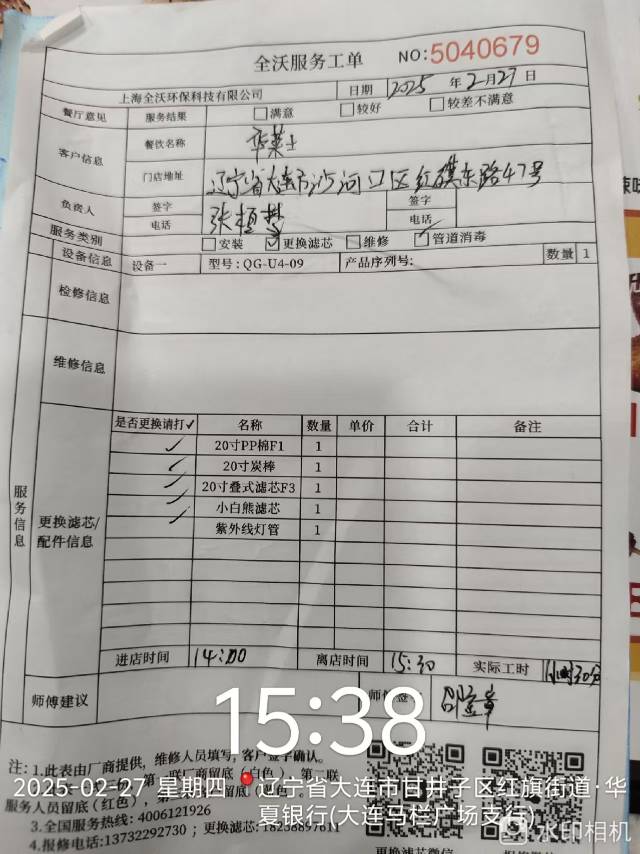 全沃服务工单
NO:5040679
上海全沃环保科技有限公司 日期 2025 年 2 月 27 日
餐厅意见 服务结果 满意 较好 较差不满意
客户信息 餐饮名称 华莱士
门店地址 辽宁省大连市沙河口区红旗东路47号
负责人 签字 张植 签字
电话 电话
服务类别 安装 ✓更换滤芯 维修 ✓管道消毒
设备信息 设备一 型号:QG-U4-09 产品序列号: 数量 1
检修信息
维修信息
服务信息
更换滤芯/配件信息
是否更换请打✓ 名称 数量 单价 合计 备注
✓ 20寸PP棉F1 1
✓ 20寸炭棒 1
✓ 20寸叠式滤芯F3 1
✓ 小白熊滤芯 1
✓ 紫外线灯管 1
进店时间 14:00 离店时间 15:30 实际工时 1小时30分
师傅建议 师傅签字
15:38
注:1.此表由厂商提供,维修人员填写,客户签字确认。
2025-02-27 星期四 辽宁省大连市甘井子区红旗街道·华
夏银行(大连马栏广场支行)
服务人员留底(红色),
3.全国服务热线:4006121926
4.报修电话:13732292730;更换滤芯:18238897611
水印相机